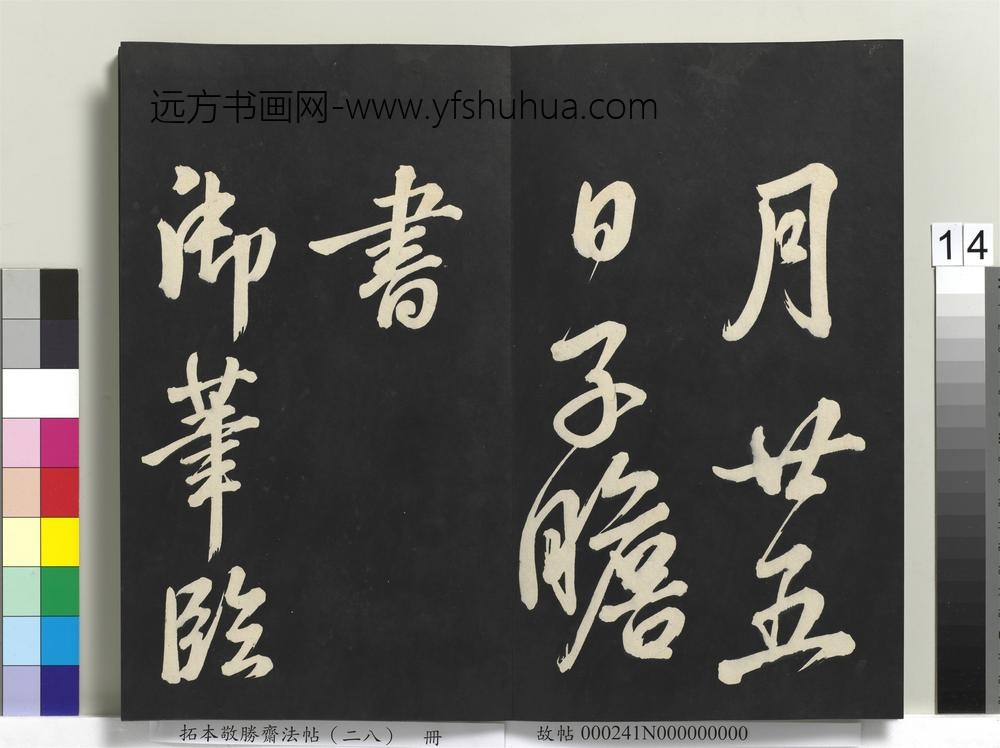 远方书画网-www.yfshuhua.com
月廿五
日子瞻
書
御筆臨
14
拓本敬勝齋法帖（二八） 冊
故帖 000241N000000000